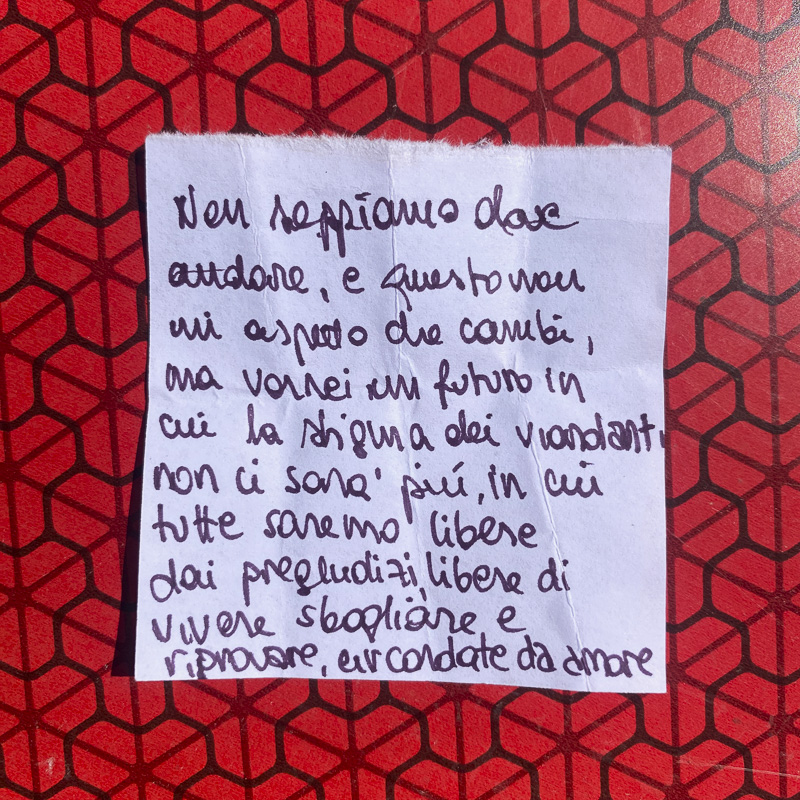 Non sappiamo dove
andare, e questo non
mi aspetto che cambi,
ma vorrei un futuro in
cui la stigma dei viandanti
non ci sara' più, in cui
tutte saremo libere
dai pregiudizi, libere di
vivere sbagliare e
riprovare, circondate da amore